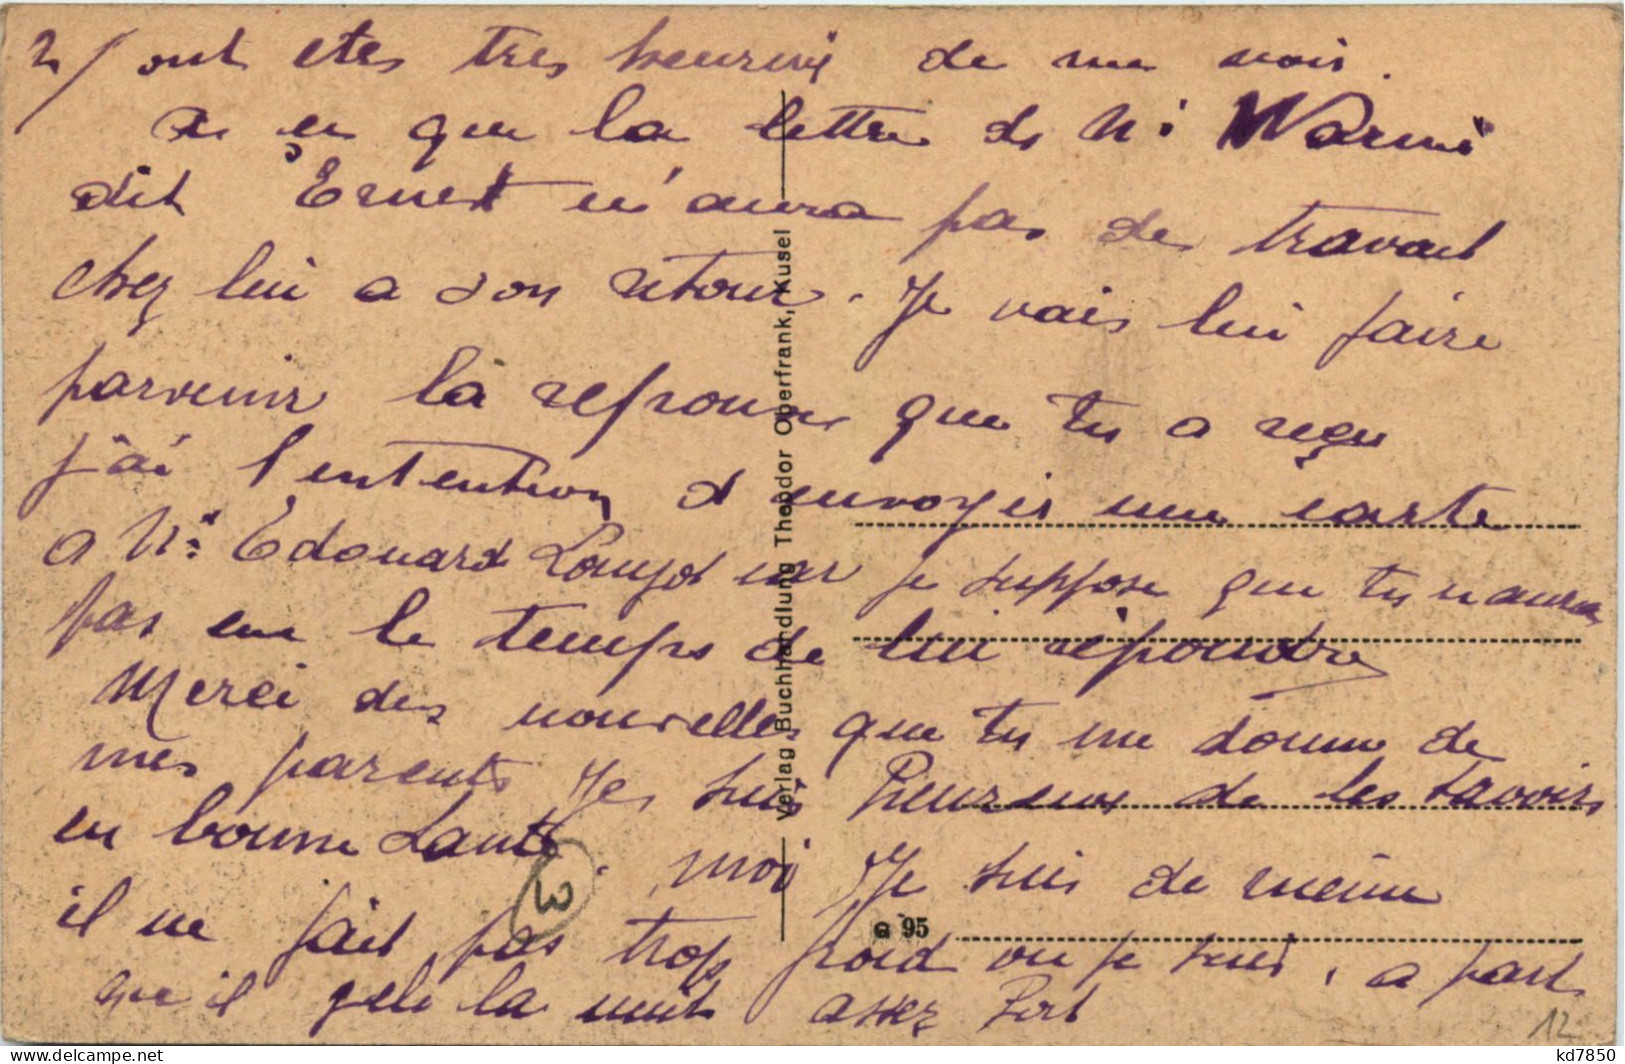 2/ ont etes tres heureux de me voir.
A ce que la lettre de Mr
dit Ernest n'aura pas de travail
chez lui a son retour. Je vais lui faire
parvenir la reponse que tu a reçu
j'ai l'entention d envoyer une carte
a Mr Edouard car je suppose que tu n aura
pas eu le temps de lui répondre
Merci des nouvelles que tu me donne de
mes parents Je suis heureux de les savoirs
en bonne santé. moi Je suis de même
il ne fait pas trop froid ou je suis, a part
que il gele la nuit assez fort
Verlag Buchhandlung Theodor Oberfrank, Kusel
e 95
3
12
kd7850